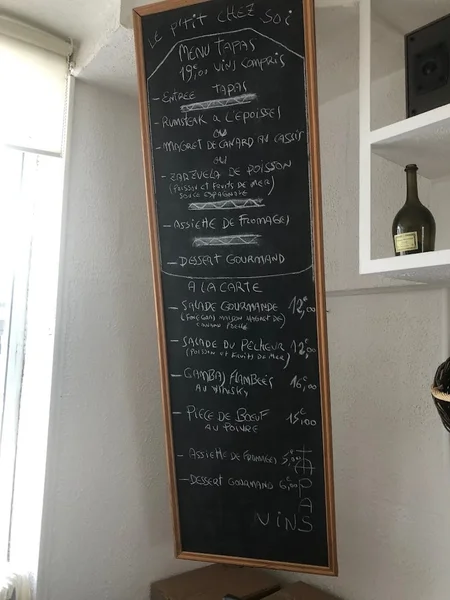 LE P'TIT CHEZ SOI
MENU TAPAS
19€,00 VINS COMPRIS
- ENTREE TAPAS
- RUMSTEAK A L'EPOISSES
OU
- MAGRET DE CANARD AU CASSIS
OU
- ZARZUELA DE POISSON
(POISSON ET FRUITS DE MER)
SAUCE ESPAGNOLE
- ASSIETTE DE FROMAGES
- DESSERT GOURMAND
A LA CARTE
- SALADE GOURMANDE 12€,00
(FOIE GRAS MAISON MAGRET DE)
CANARD POELÉ
- SALADE DU PÊCHEUR 12€,00
(POISSON ET FRUITS DE MER)
- GAMBAS FLAMBÉES 16€,00
AU WHISKY
- PIECE DE BOEUF 15€,00
AU POIVRE
- ASSIETTE DE FROMAGES
- DESSERT GOURMAND 6€,00
TAPAS
VINS